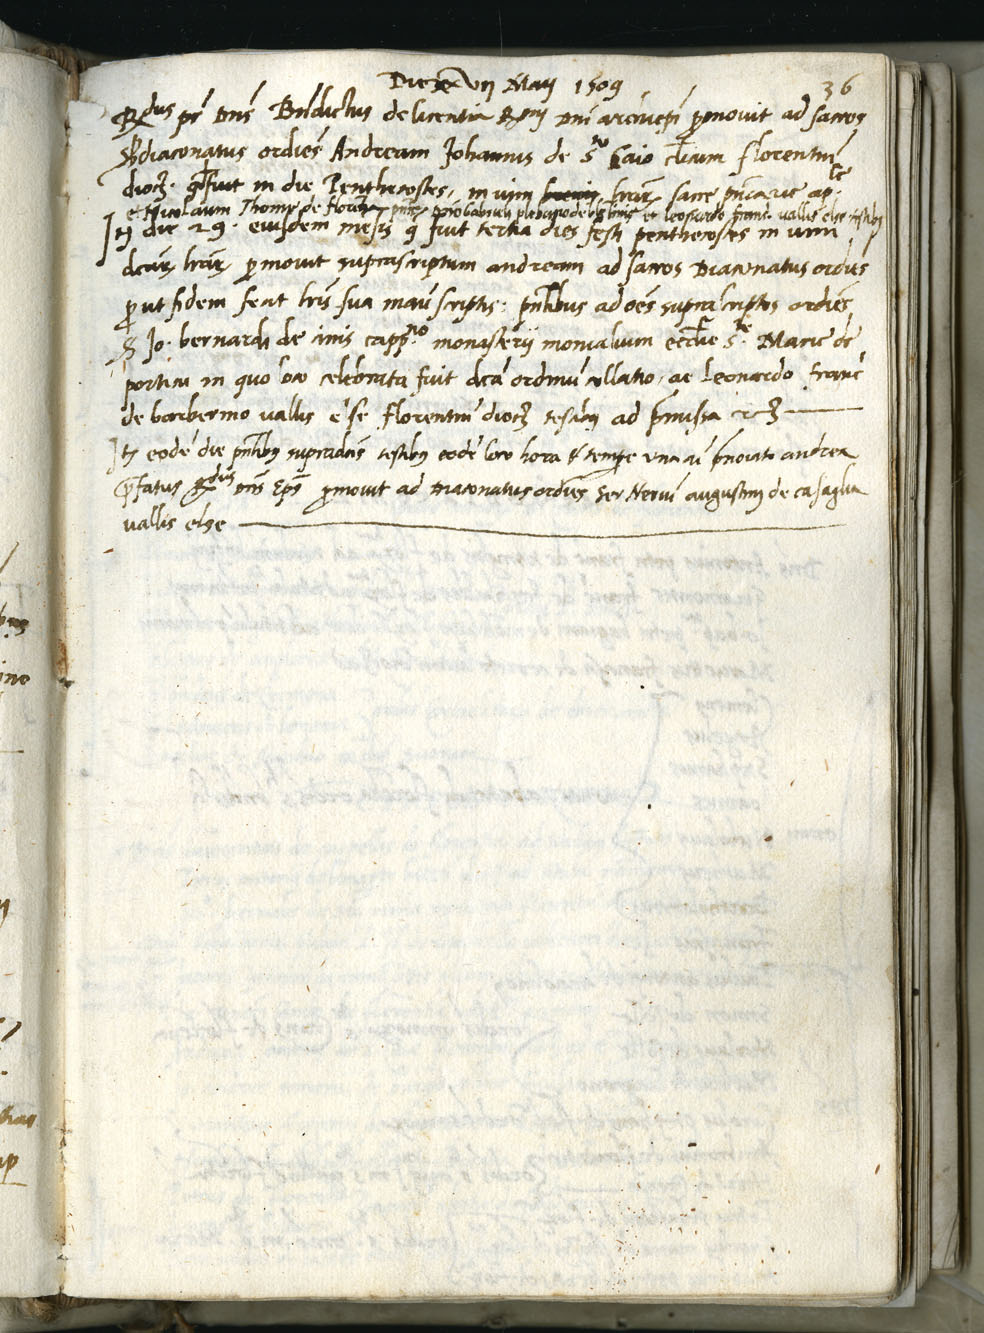 Die xxvij Maij 1509
36
R.dus pr dns Bndictus de licentia R.mi dni archiepi pmovit ad sacros
subdiaconatus ordies Andream Johannis de S.to Caio clicum florentin
dioc. q fuit in die Penthecostes, in vim lrar sacre pnitarie ap.ce
et Nicolaum Thome de florentia et Leonardo franc. vallis else testibus
Itz die 29. eiusdem mesis q fuit tertia dies festi penthecostes in vim
dcar lrar pmovit suprascriptum andream ad sacros Diaconatus ordies
put fidem fecit lris sua manu scriptis: pntibus ad oes suprascriptos ordies
S Jo. bernardi de imis capp.no monasterij monialium ecclie S.te Marie de
porticu in quo loco celebrata fuit dca ordinu collatio, ac Leonardo franc
de barberino vallis else florentin dioc testibus ad pmissa etc
Itz eode die pntibus supradictis testibus eode loco hora et tempe una cu pnoiato andrea
Pfatus R.dus dns Eps pmovit ad diaconatus ordies ser Neriu augustini de casaglia
vallis else